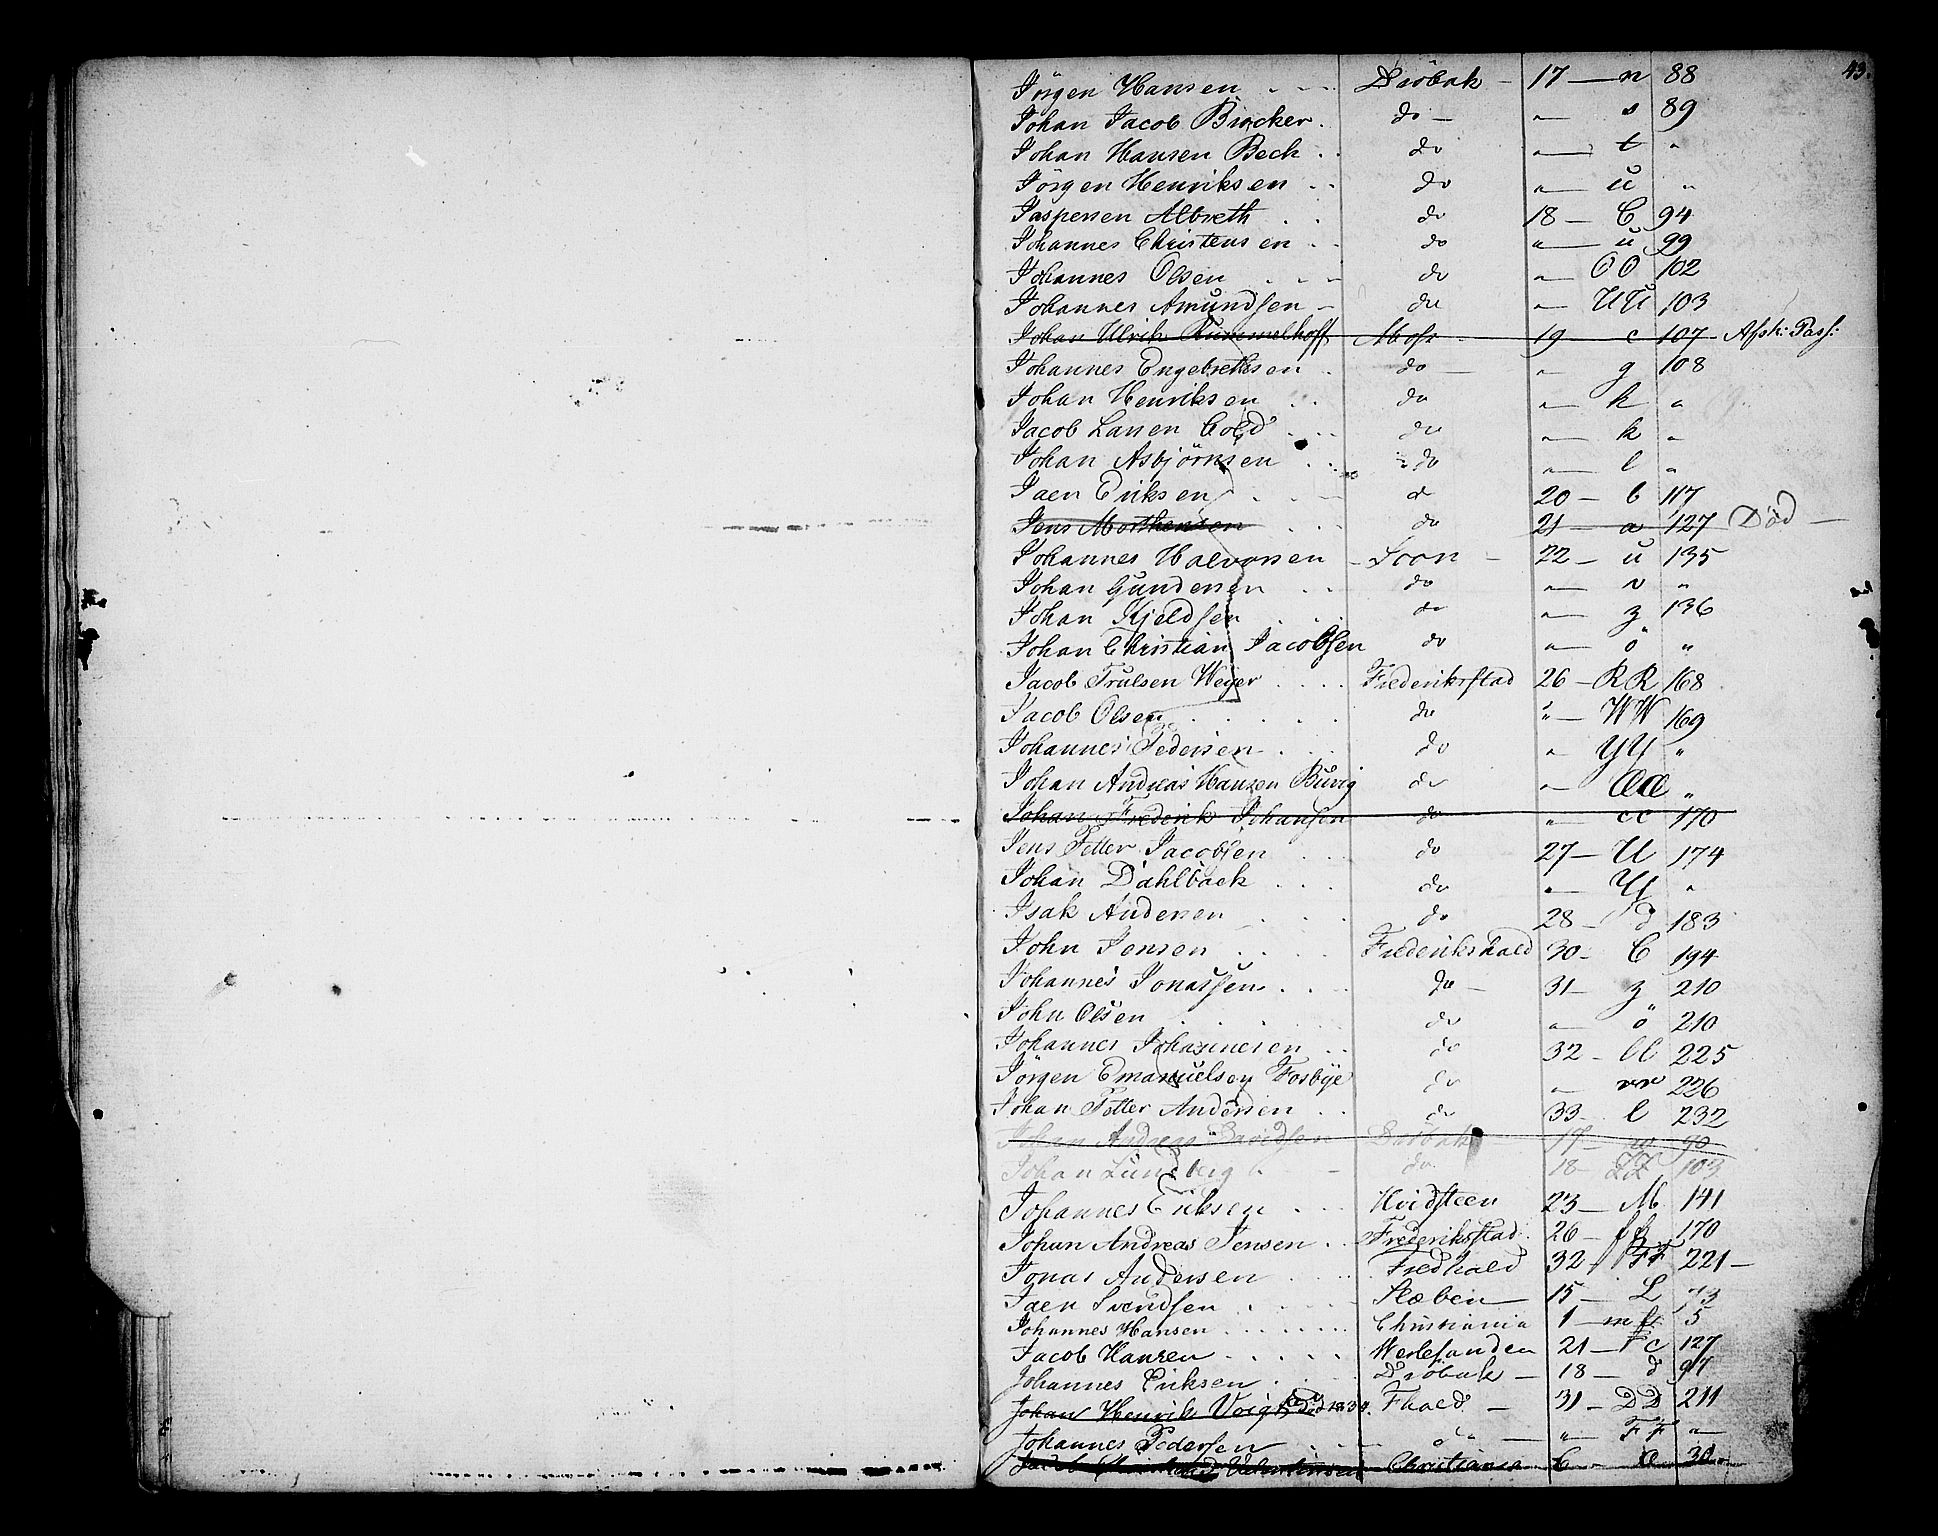 43.
Jörgen Hansen - - - Dröbak - 17 — n 88
Johan Jacob Bröcker . do — " — s 89
Johan Hansen Bech . . do " — t "
Jörgen Henriksen - - do " — u "
Jaspersen Albreth . . do 18 — C 94
Johannes Christensen - - do " — u 99
Johannes Olsen . - - - do " — OO 102
Johannes Amundsen - do " — UU 103
Johan Ulrik Rummelhoff Moss - 19 c 107 Afsk: Pass:
Johannes Engebrethsen . do — " — g 108
Johan Henriksen . . do " — k "
Jacob Larsen Gold . . . do " — k "
Johan Asbjörnsen . . do " — l "
Jaen Eriksen . . . do 20 — b 117
Jens Morthensen . . . do 21 — a 127 Död —
Johannes Halvorsen - Soon - 22 — u 135
Johan Gundersen . . do " — v "
Johan Kjeldsen . . . do " — z 136
Johan Christian Jacobsen do " — ö "
Jacob Trulsen Weyer . . . . Frederikstad 26 — RR 168
Jacob Olsen . . . . . do " — WW 169
Johannes Pedersen - . . . do " YY "
Johan Andreas Hansen Buvig do " — ÆÆ "
Johan Frederik Johansen do " — cc 170
Jens Petter Jacobsen . . . do 27 — U 174
Johan Dahlback . . . do " — Y "
Isak Andersen . . . . do 28 — d 183
John Jensen . . . . Frederikshald 30 - C 194
Johannes Jonassen . . . do — 31 — z 210
John Olsen . . . . . do " — ö 210
Johannes Johannesen . . do 32 — ll 225
Jörgen Emanuelsen Fosbye do " — vv 226
Johan Petter Andersen . . do 33 - l 232
Johan Andreas Davidsen Dröbak 17 — w 90
Johan Lundberg . - do 18 — ZZ 103
Johannes Eriksen . . . Hvidsteen 23 — M 141
Johan Andreas Jensen . . Frederikstad . 26 — 170
Jonas Andersen . . . . Fredhald 32 FF 221 —
Jaen Svendsen . . . . Slæben — 15 — L 73
Johannes Hansen . . . . . . . Christiania 1 — m 5
Jacob Hansen . . . . . 21 — c 127
Johannes Eriksen . . . . Dröbak — 18 — d 97
Johan Henrik Voigt död 1834. Fhald — 31 — DD 211
Johannes Pedersen . . . " " — " — FF " —
Valentinsen Christiania 6 — 30